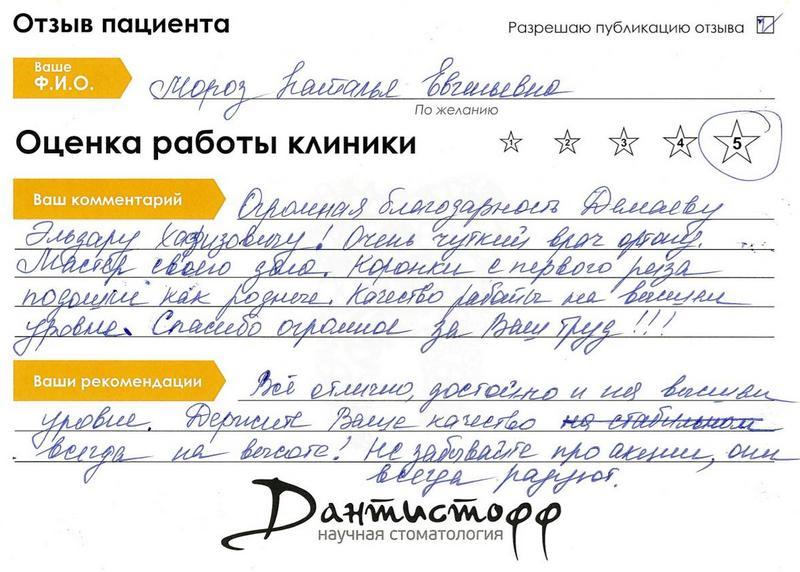 Отзыв пациента
Разрешаю публикацию отзыва
Ваше
Ф.И.О.
Мороз Наталья Евгеньевна
По желанию
Оценка работы клиники
1 2 3 4 5
Ваш комментарий
Огромная благодарность Демаеву
Эльдару Хафизовичу! Очень чуткий врач ортоп. ...
Мастер своего дела. Коронки с первого раза
подошли как родные. Качество работы на высшем
уровне. Спасибо огромное за Ваш труд!!!
Ваши рекомендации
Всё отлично, достойно и на высшем
уровне. Держите Ваше качество на стабильном
всегда на высоте! Не забывайте про акции, они
всегда радуют.
Дантистофф
научная стоматология